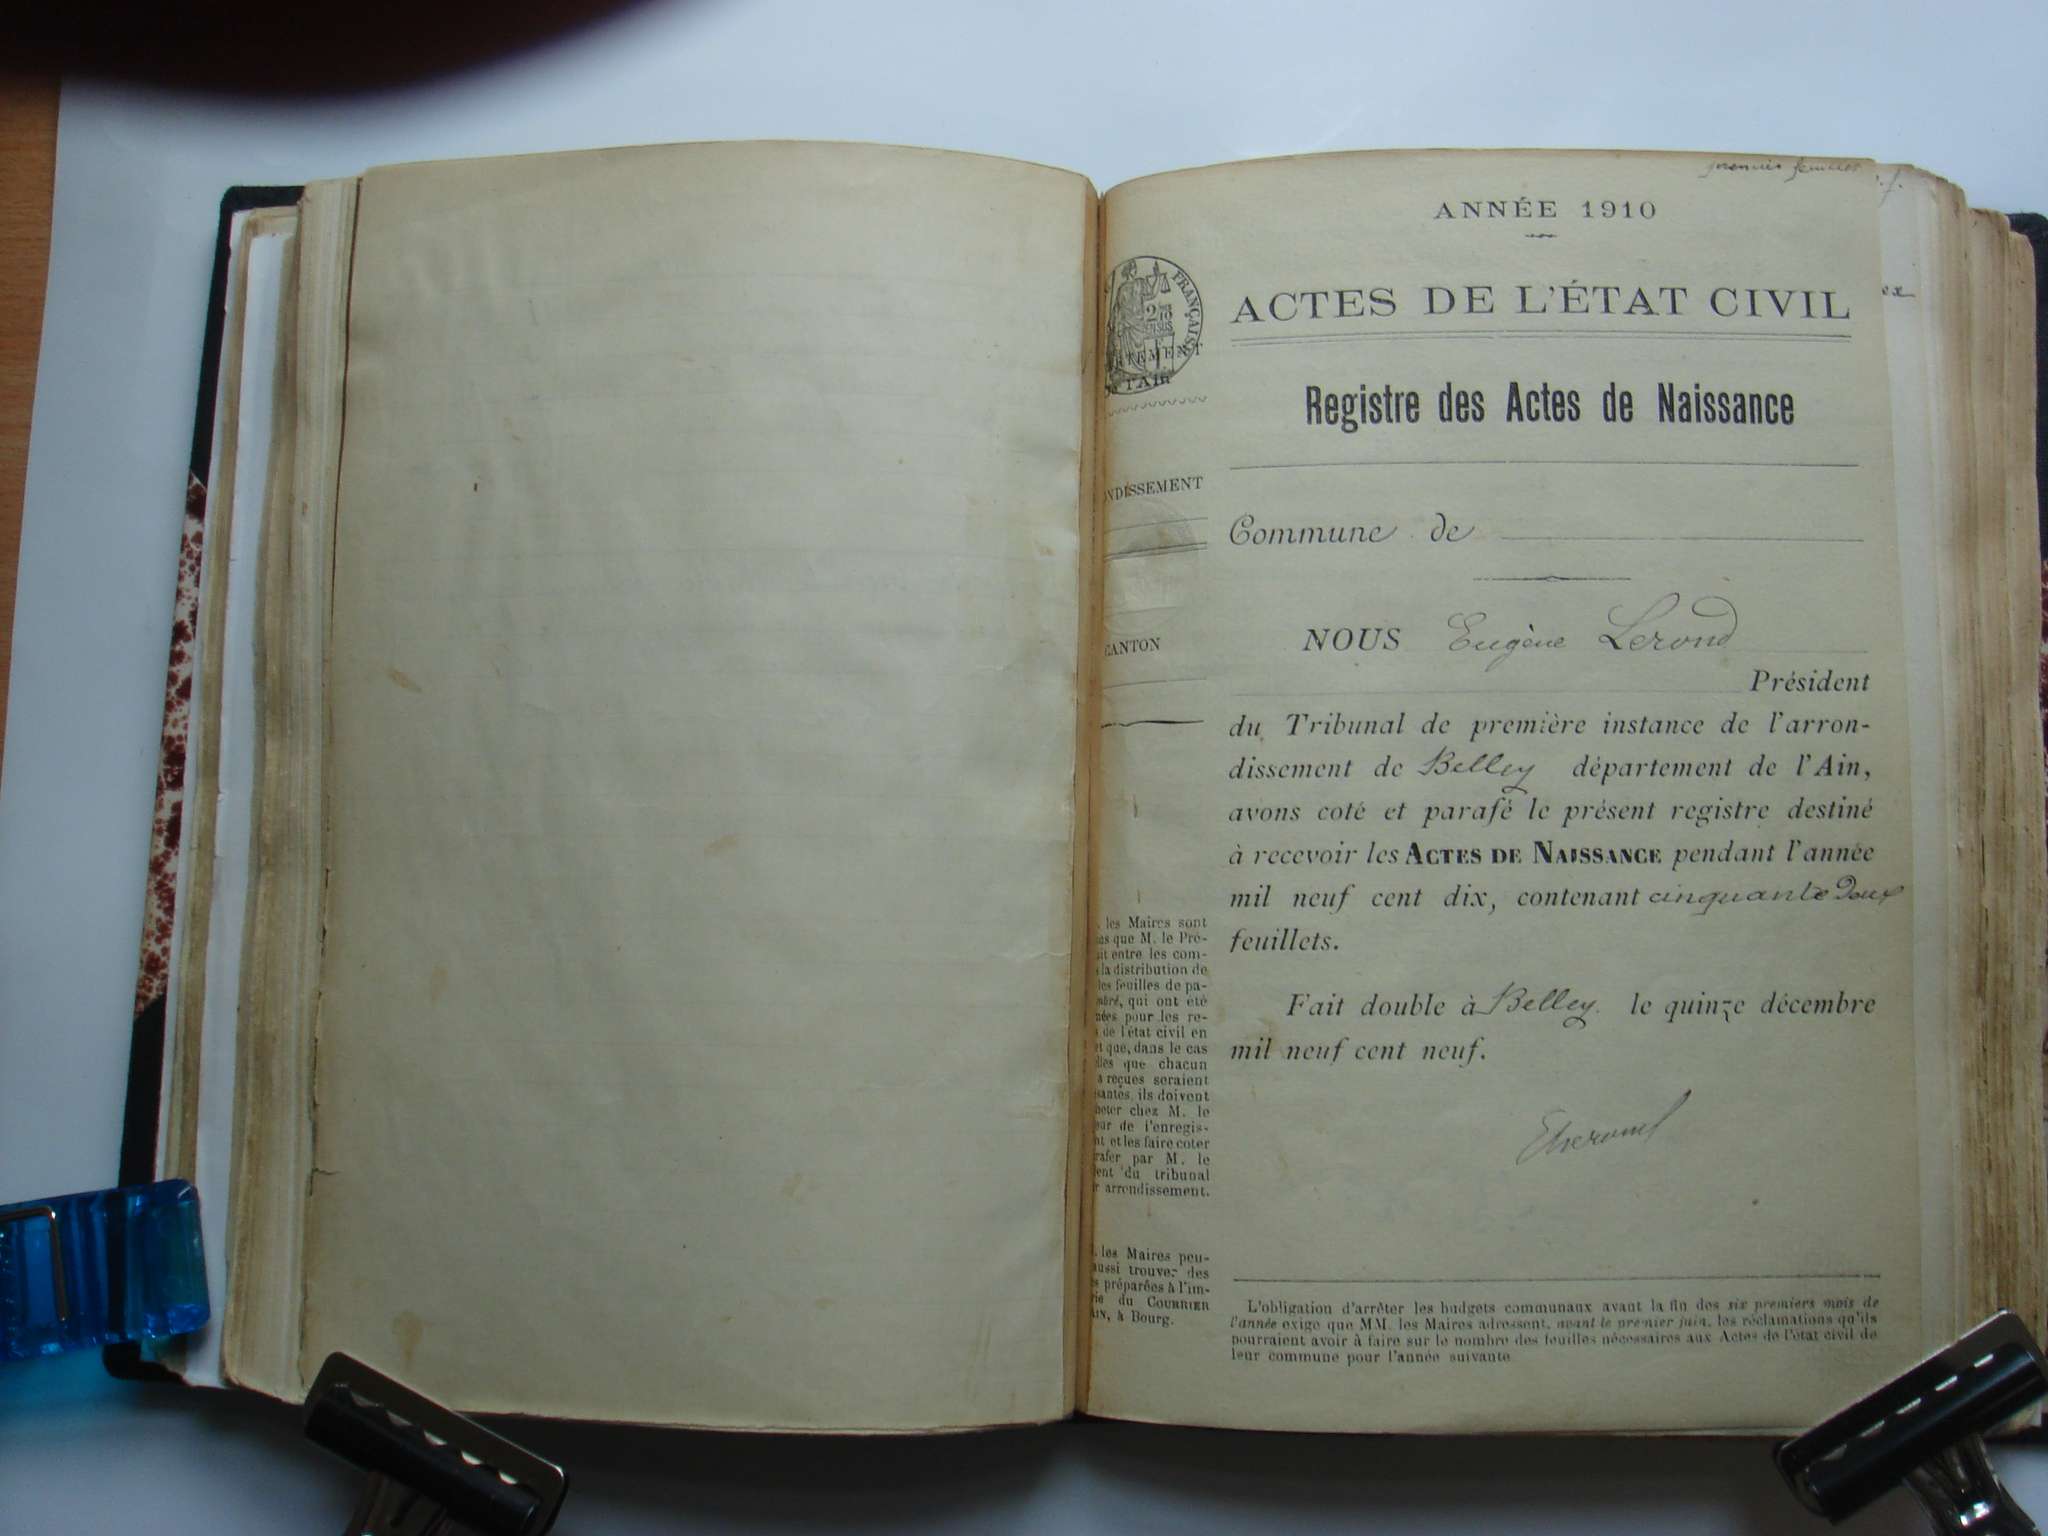 premier feuillet
ANNÉE 1910
ACTES DE L'ÉTAT CIVIL
FRANÇAISE
Registre des Actes de Naissance
Commune de
NOUS Eugène Lerond
Président
du Tribunal de première instance de l'arron-
dissement de Belley département de l'Ain,
avons coté et parafé le présent registre destiné
à recevoir les ACTES DE NAISSANCE pendant l'année
mil neuf cent dix, contenant cinquante deux
feuillets.
Fait double à Belley le quinze décembre
mil neuf cent neuf.
L'obligation d'arrêter les budgets communaux avant la fin des six premiers mois de
l'année exige que MM. les Maires adressent, avant le premier juin, les réclamations qu'ils
pourraient avoir à faire sur le nombre des feuilles nécessaires aux Actes de l'état civil de
leur commune pour l'année suivante
l'Ain
NDISSEMENT
CANTON
les Maires sont
que M. le Pré-
entre les com-
la distribution de
les feuilles de pa-
qui ont été
pour les re-
de l'état civil en
et que, dans le cas
que chacun
reçues seraient
ils doivent
chez M. le
de l'enregis-
et les faire coter
par M. le
du tribunal
arrondissement.
les Maires peu-
aussi trouver des
préparées à l'im-
du COURRIER
à Bourg.